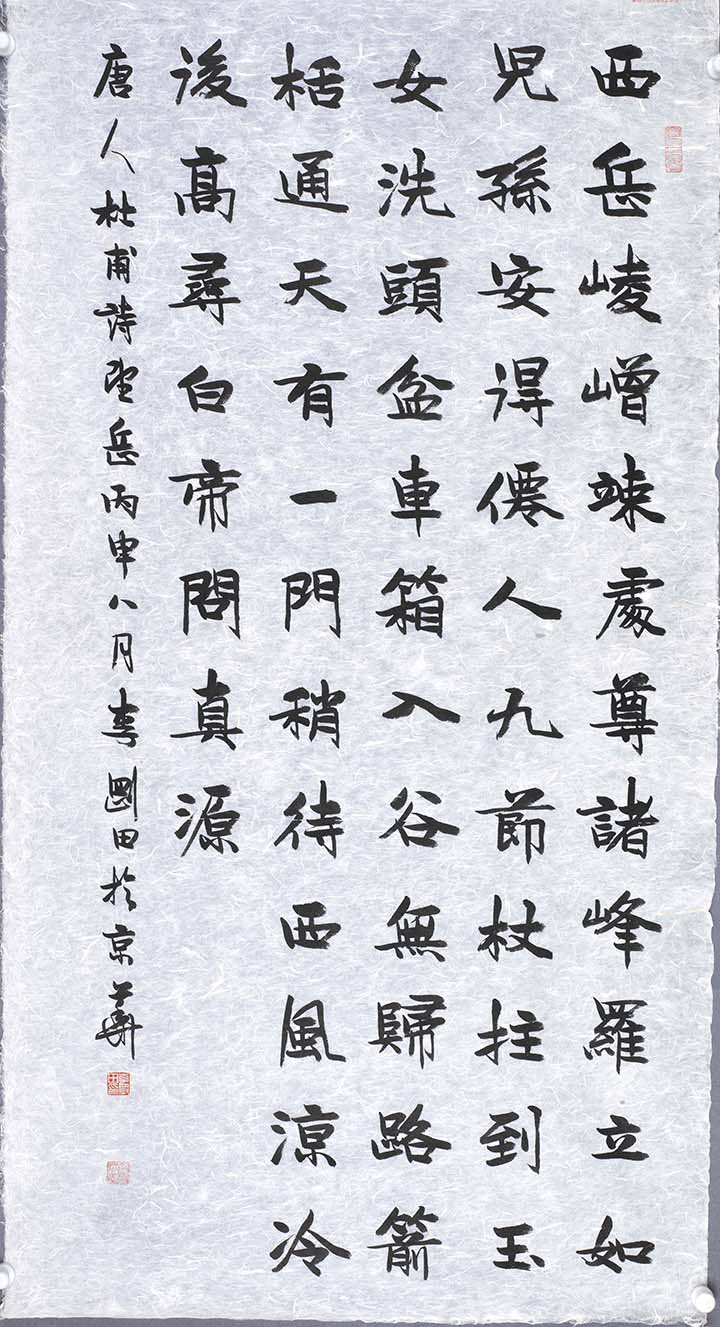 西岳崚嶒竦處尊諸峰羅立如
兒孫安得僊人九節杖拄到玉
女洗頭盆車箱入谷無歸路箭
栝通天有一門稍待西風涼冷
後高尋白帝問真源
唐人杜甫詩望岳丙申八月李剛田於京華